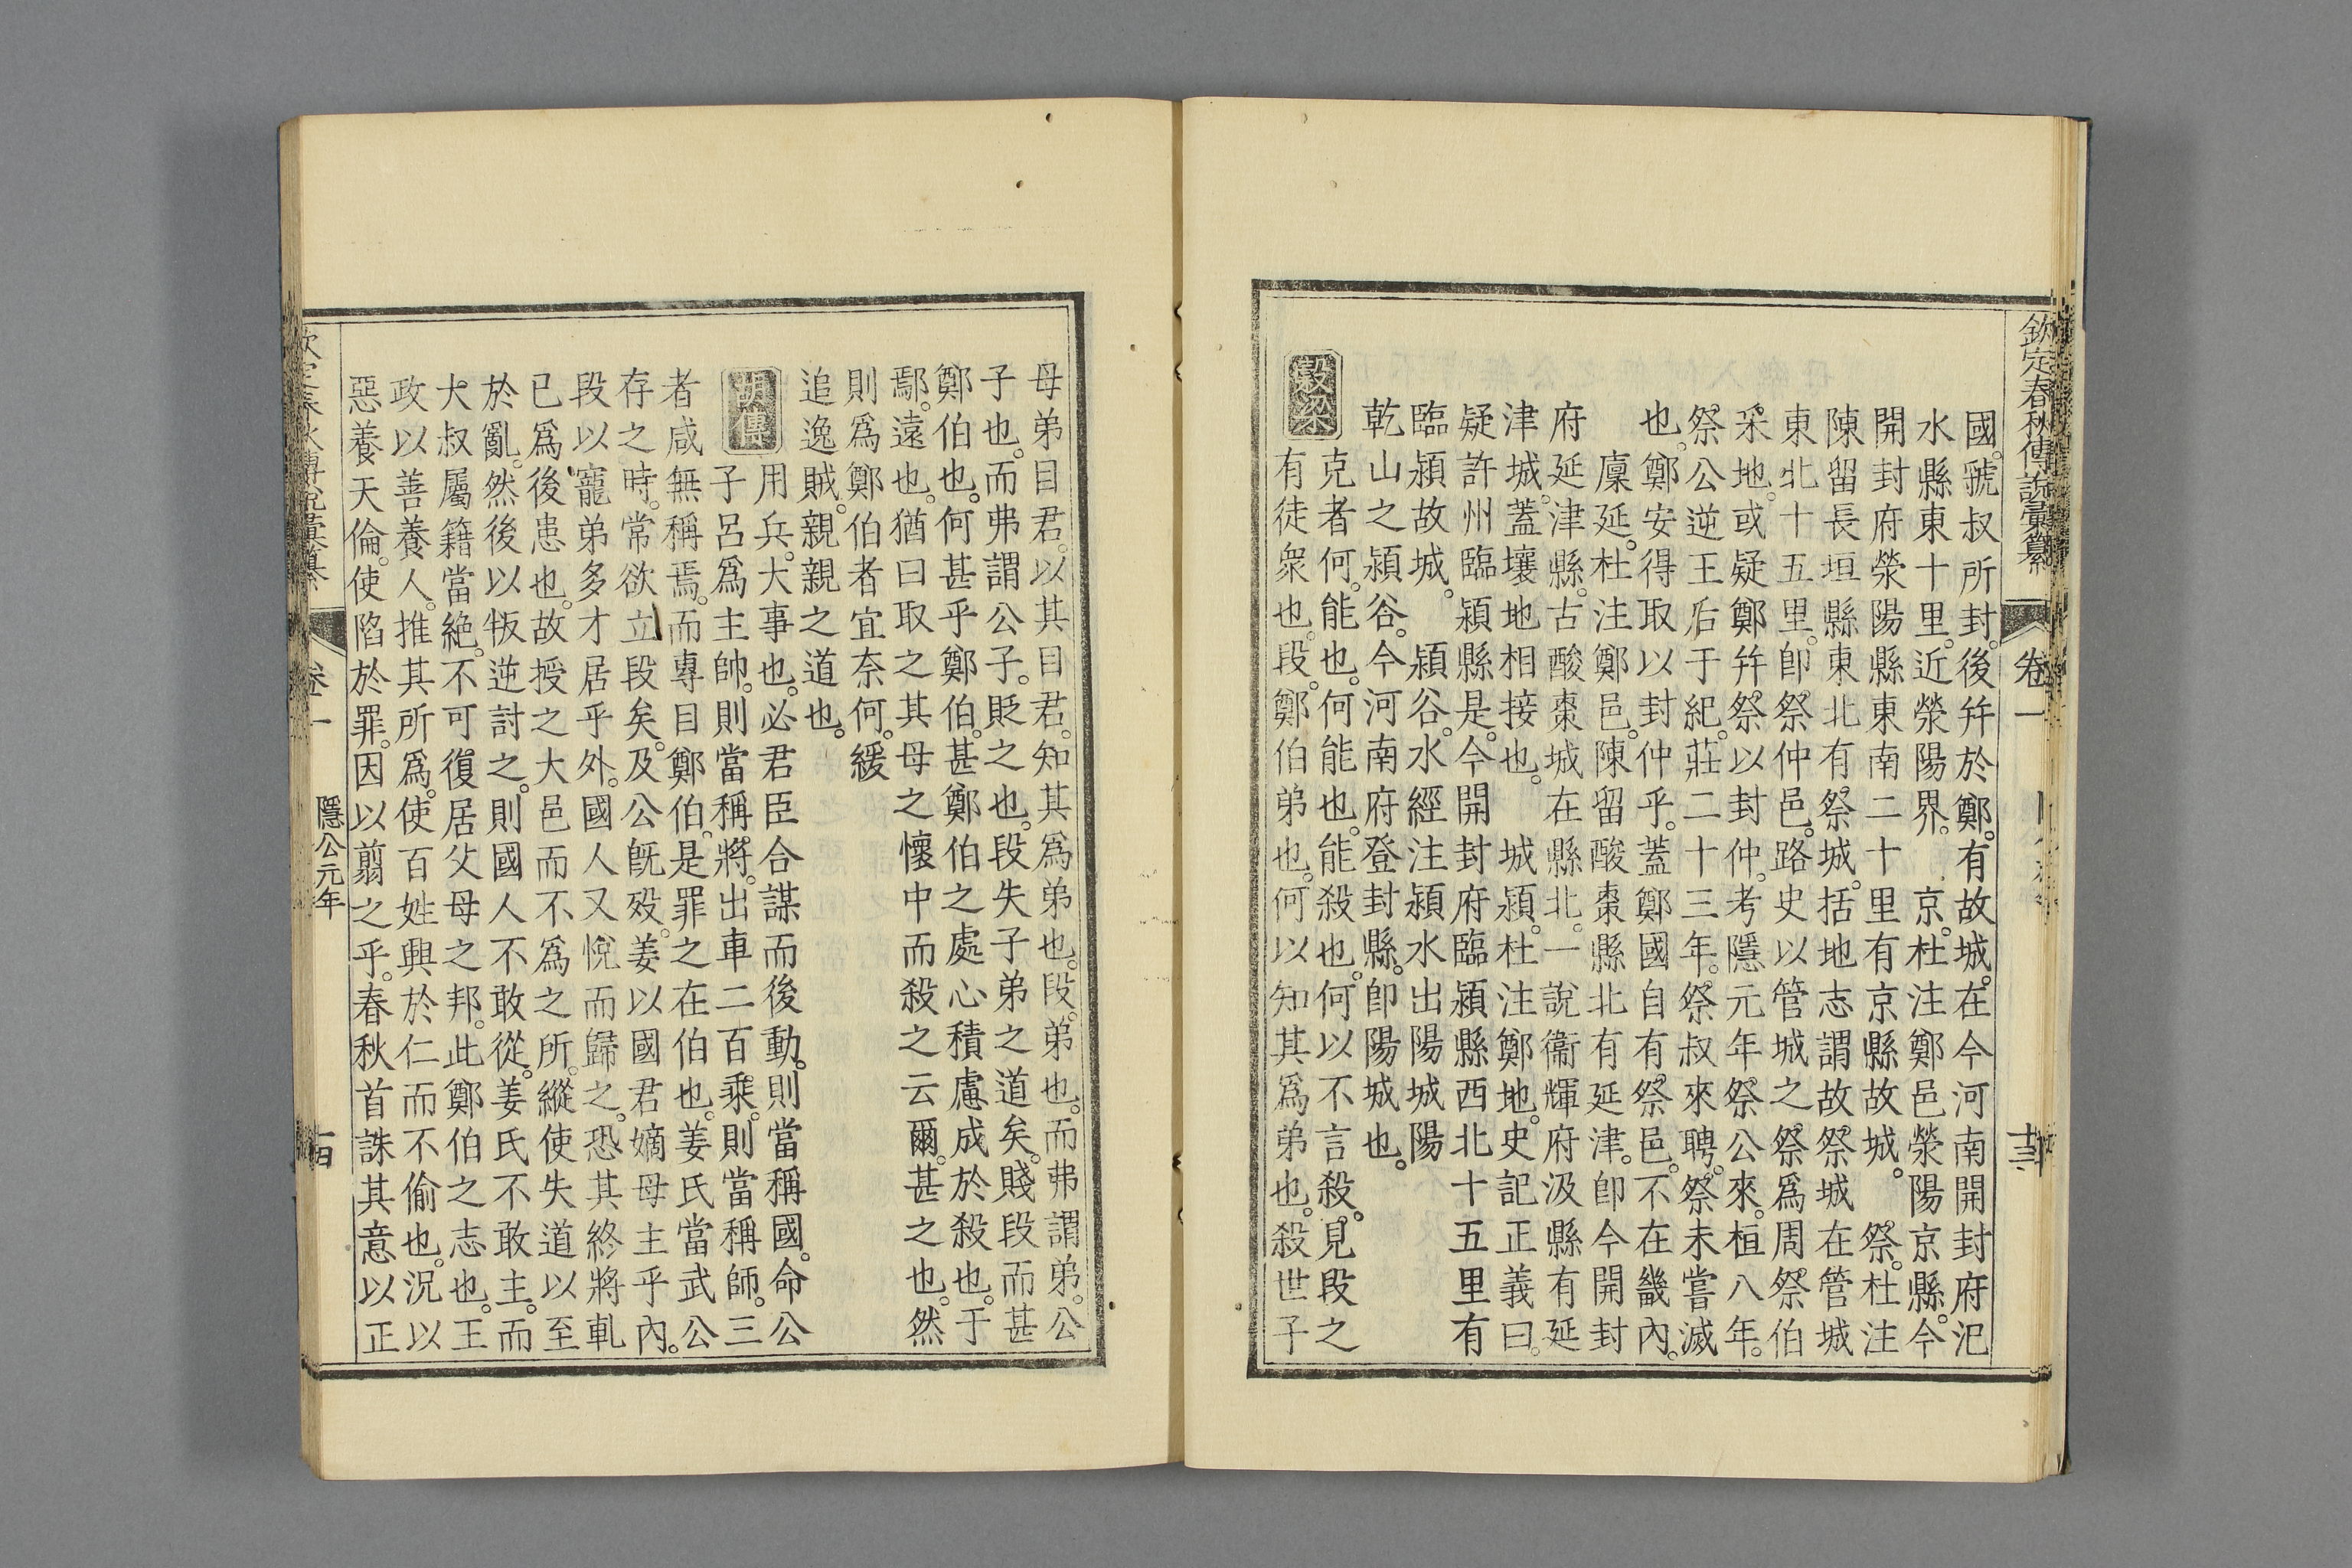 欽定春秋傳說彙纂 卷一 十三
國。虢叔所封。後幷於鄭。有故城。在今河南開封府汜
水縣東十里。近滎陽界。 京。杜注鄭邑滎陽京縣。今
開封府滎陽縣東南二十里有京縣故城。 祭。杜注
陳留長垣縣東北有祭城。括地志謂故祭城在管城
東北十五里。卽祭仲邑。路史以管城之祭爲周祭伯
采地。或疑鄭幷祭以封仲。考隱元年祭公來。桓八年。
祭公逆王后于紀。莊二十三年。祭叔來聘。祭未嘗滅
也。鄭安得取以封仲乎。蓋鄭國自有祭邑。不在畿內。
廩延。杜注鄭邑。陳留酸棗縣北有延津。卽今開封
府延津縣。古酸棗城在縣北。一說衞輝府汲縣有延
津城。蓋壤地相接也。 城潁。杜注鄭地。史記正義曰。
疑許州臨潁縣是。今開封府臨潁縣西北十五里有
臨潁故城。 潁谷。水經注潁水出陽城陽
乾山之潁谷。今河南府登封縣。卽陽城也。
穀梁 克者何。能也。何能也。能殺也。何以不言殺。見段之
有徒衆也。段。鄭伯弟也。何以知其爲弟也。殺世子
母弟目君。以其目君。知其爲弟也。段。弟也。而弗謂弟。公
子也。而弗謂公子。貶之也。段失子弟之道矣。賤段而甚
鄭伯也。何甚乎鄭伯。甚鄭伯之處心積慮成於殺也。于
鄢。遠也。猶曰取之其母之懷中而殺之云爾。甚之也。然
則爲鄭伯者宜奈何。緩
追逸賊。親親之道也。
胡傳 用兵。大事也。必君臣合謀而後動。則當稱國。命公
子呂爲主帥。則當稱將。出車二百乘。則當稱師。三
者咸無稱焉。而專目鄭伯。是罪之在伯也。姜氏當武公
存之時。常欲立段矣。及公旣歿。姜以國君嫡母主乎內。
段以寵弟多才居乎外。國人又悅而歸之。恐其終將軋
已爲後患也。故授之大邑而不爲之所。縱使失道以至
於亂。然後以叛逆討之。則國人不敢從。姜氏不敢主。而
大叔屬籍當絕。不可復居父母之邦。此鄭伯之志也。王
政以善養人。推其所爲。使百姓興於仁而不偷也。況以
惡養天倫。使陷於罪。因以翦之乎。春秋首誅其意以正
卷一 隱公元年 十四